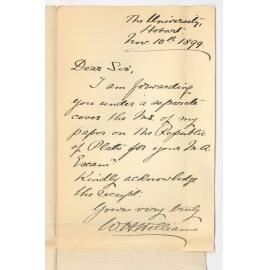 The University,
Hobart
Nov. 10th 1899
Dear Sir,
I am forwarding
you under a separate
cover the Ms. of my
paper on the Republic
of Plato for your M.A.
Examn
Kindly acknowledge
the receipt.
Yours very truly
W H Williams